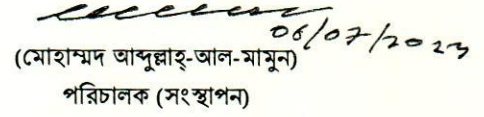 06/07/2023
(মোহাম্মদ আব্দুল্লাহ্-আল-মামুন)
পরিচালক (সংস্থাপন)